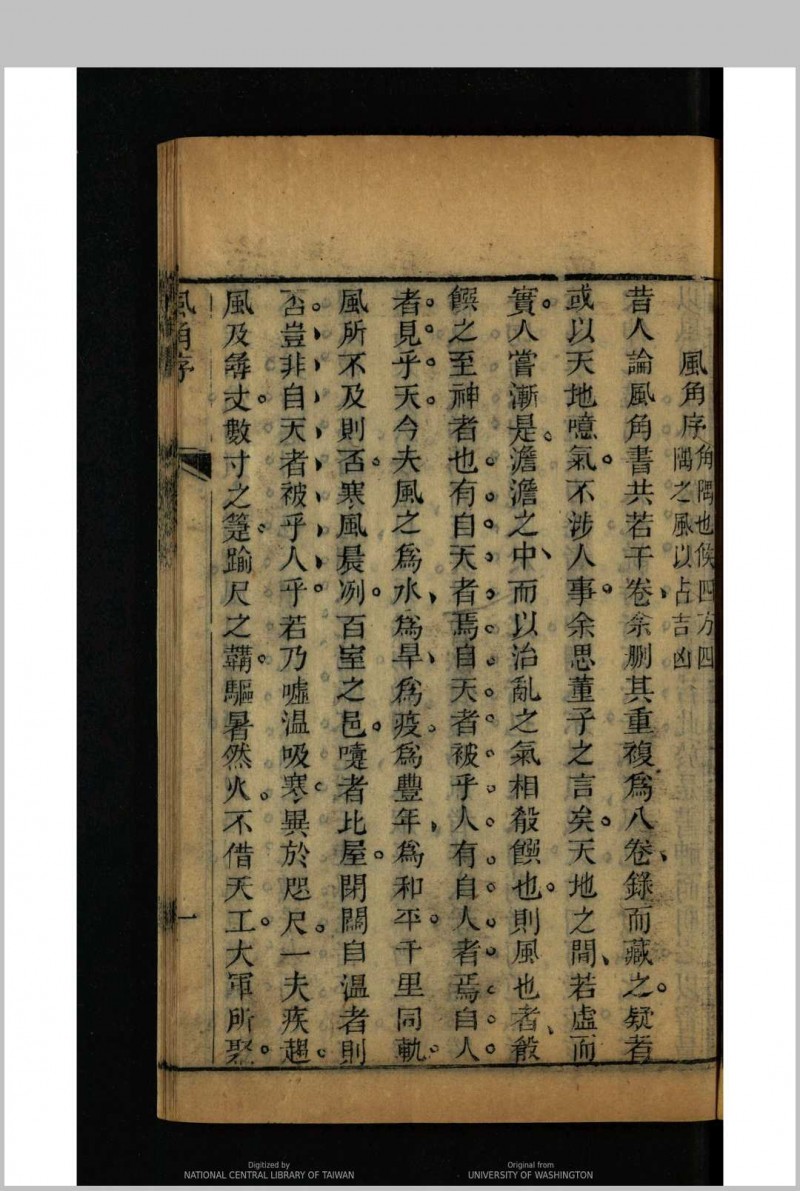 風角序
角隅也候四方四
隅之風以占吉凶
昔人論風角書共若干卷余刪其重複爲八卷錄而藏之疑者
或以天地噫氣不涉人事余思董子之言矣天地之間若虛而
實人嘗漸是澹澹之中而以治亂之氣相殽饌也則風也者殽
饌之至神者也有自天者焉自天者被乎人有自人者焉自人
者見乎天今夫風之爲水爲旱爲疫爲豐年爲和平千里同軌
風所不及則否寒風晨冽百室之邑嚏者比屋閉關自温者則
否豈非自天者被乎人乎若乃噓温吸寒異於咫尺一夫疾趨
風及尋丈數寸之箑踰尺之鞲驅暑然火不借天工大軍所聚
風角序
一
Digitized by
NATIONAL CENTRAL LIBRARY OF TAIWAN
Original from
UNIVERSITY OF WASHINGTON